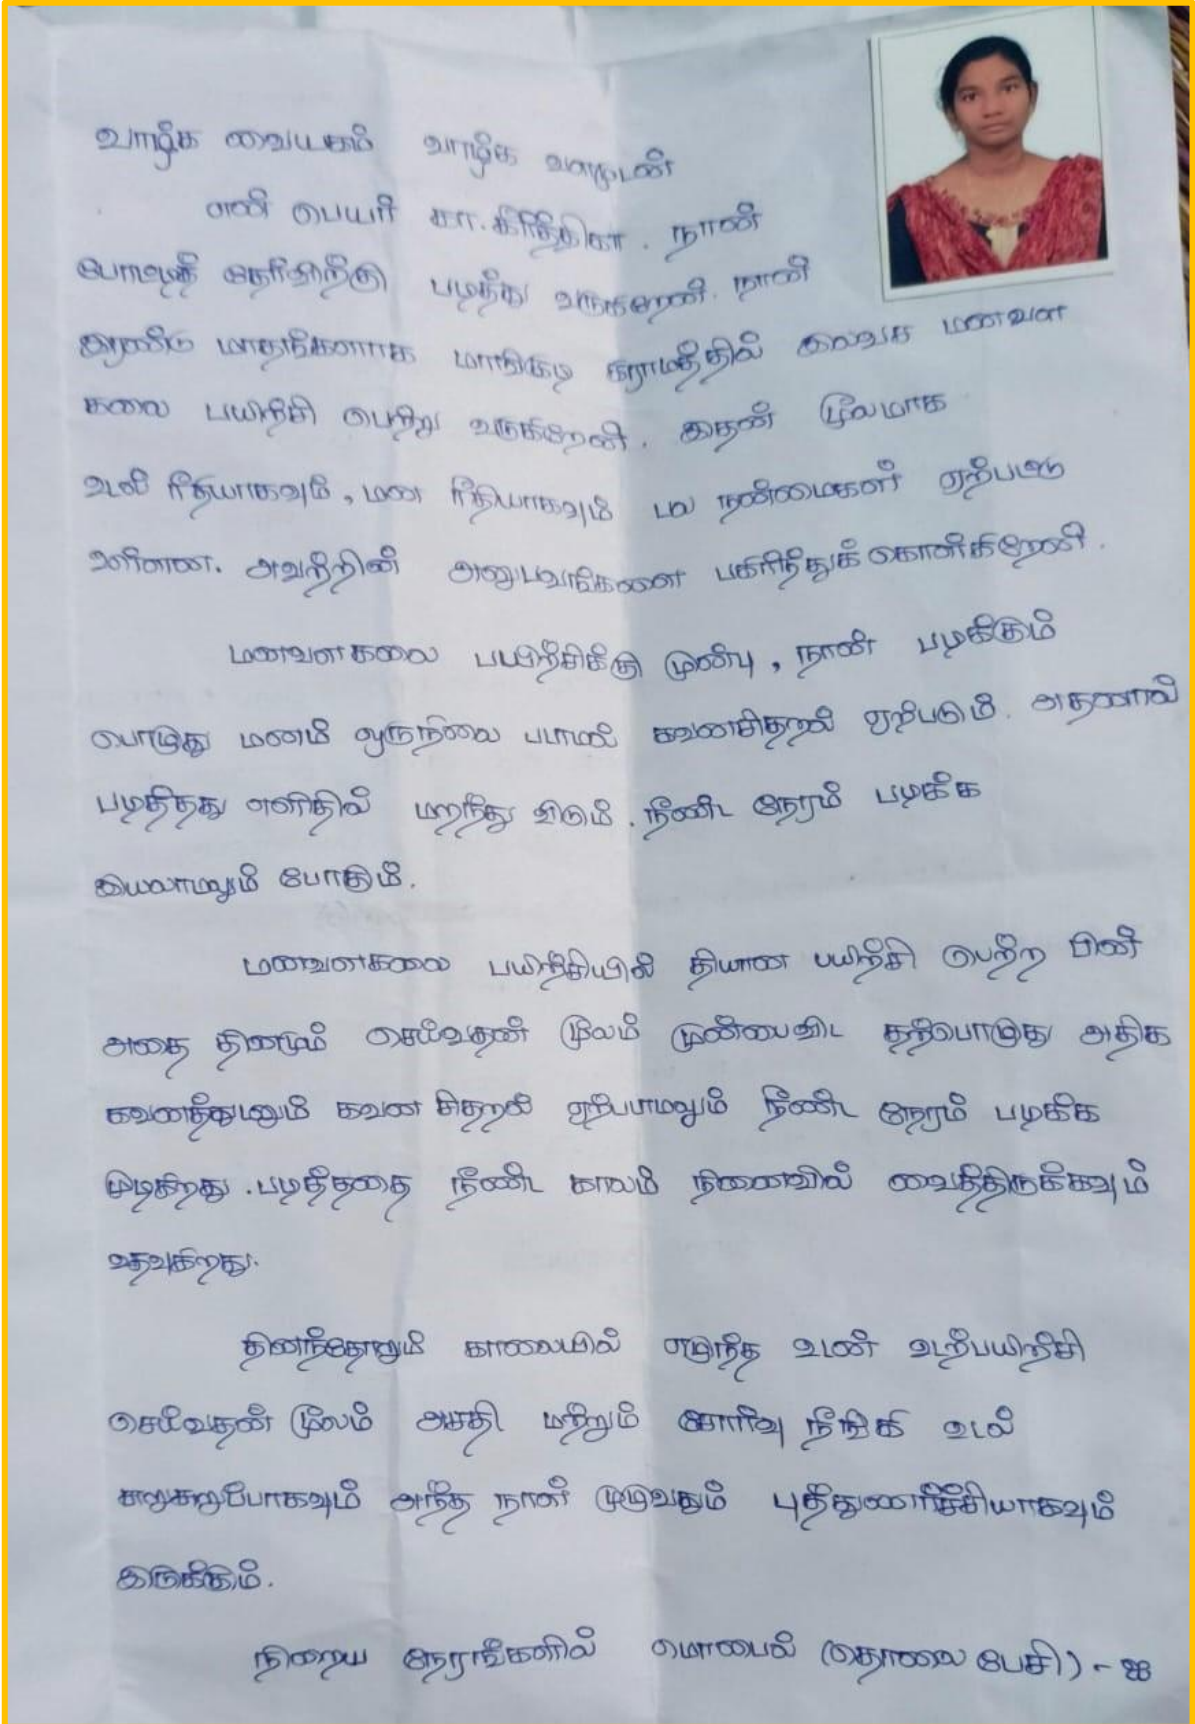 வாழ்க வையகம் வாழ்க வளமுடன்
என் பெயர் கா. கீர்த்திகா. நான்
போட்டித் தேர்விற்கு படித்து வருகிறேன். நான்
இரண்டு மாதங்களாக மாங்குடி கிராமத்தில் மனவள
கலை பயிற்சி பெற்று வருகிறேன். இதன் மூலமாக
உடல் ரீதியாகவும், மன ரீதியாகவும் பல நன்மைகள் ஏற்பட்டு
உள்ளன. அவற்றின் அனுபவங்களை பகிர்ந்துக் கொள்கிறேன்.
மனவளகலை பயிற்சிக்கு முன்பு, நான் படிக்கும்
பொழுது மனம் ஒருநிலை படாமல் கவனசிதறல் ஏற்படும். அதனால்
படித்தது எளிதில் மறந்து விடும். நீண்ட நேரம் படிக்க
இயலாமலும் போகும்.
மனவளகலை பயிற்சியில் தியான பயிற்சி பெற்ற பின்
அதை தினமும் செய்வதன் மூலம் முன்பைவிட தற்பொழுது அதிக
கவனத்துடனும் கவன சிதறல் ஏற்படாமலும் நீண்ட நேரம் படிக்க
முடிகிறது. படித்ததை நீண்ட காலம் நினைவில் வைத்திருக்கவும்
உதவுகிறது.
தினந்தோறும் காலையில் எழுந்த உடன் உடற்பயிற்சி
செய்வதன் மூலம் அசதி மற்றும் சோர்வு நீங்கி உடல்
சுறுசுறுப்போகவும் அந்த நாள் முழுவதும் புத்துணர்ச்சியாகவும்
இருக்கும்.
நிறைய நேரங்களில் மொபைல் (தொலை பேசி) - ஐ